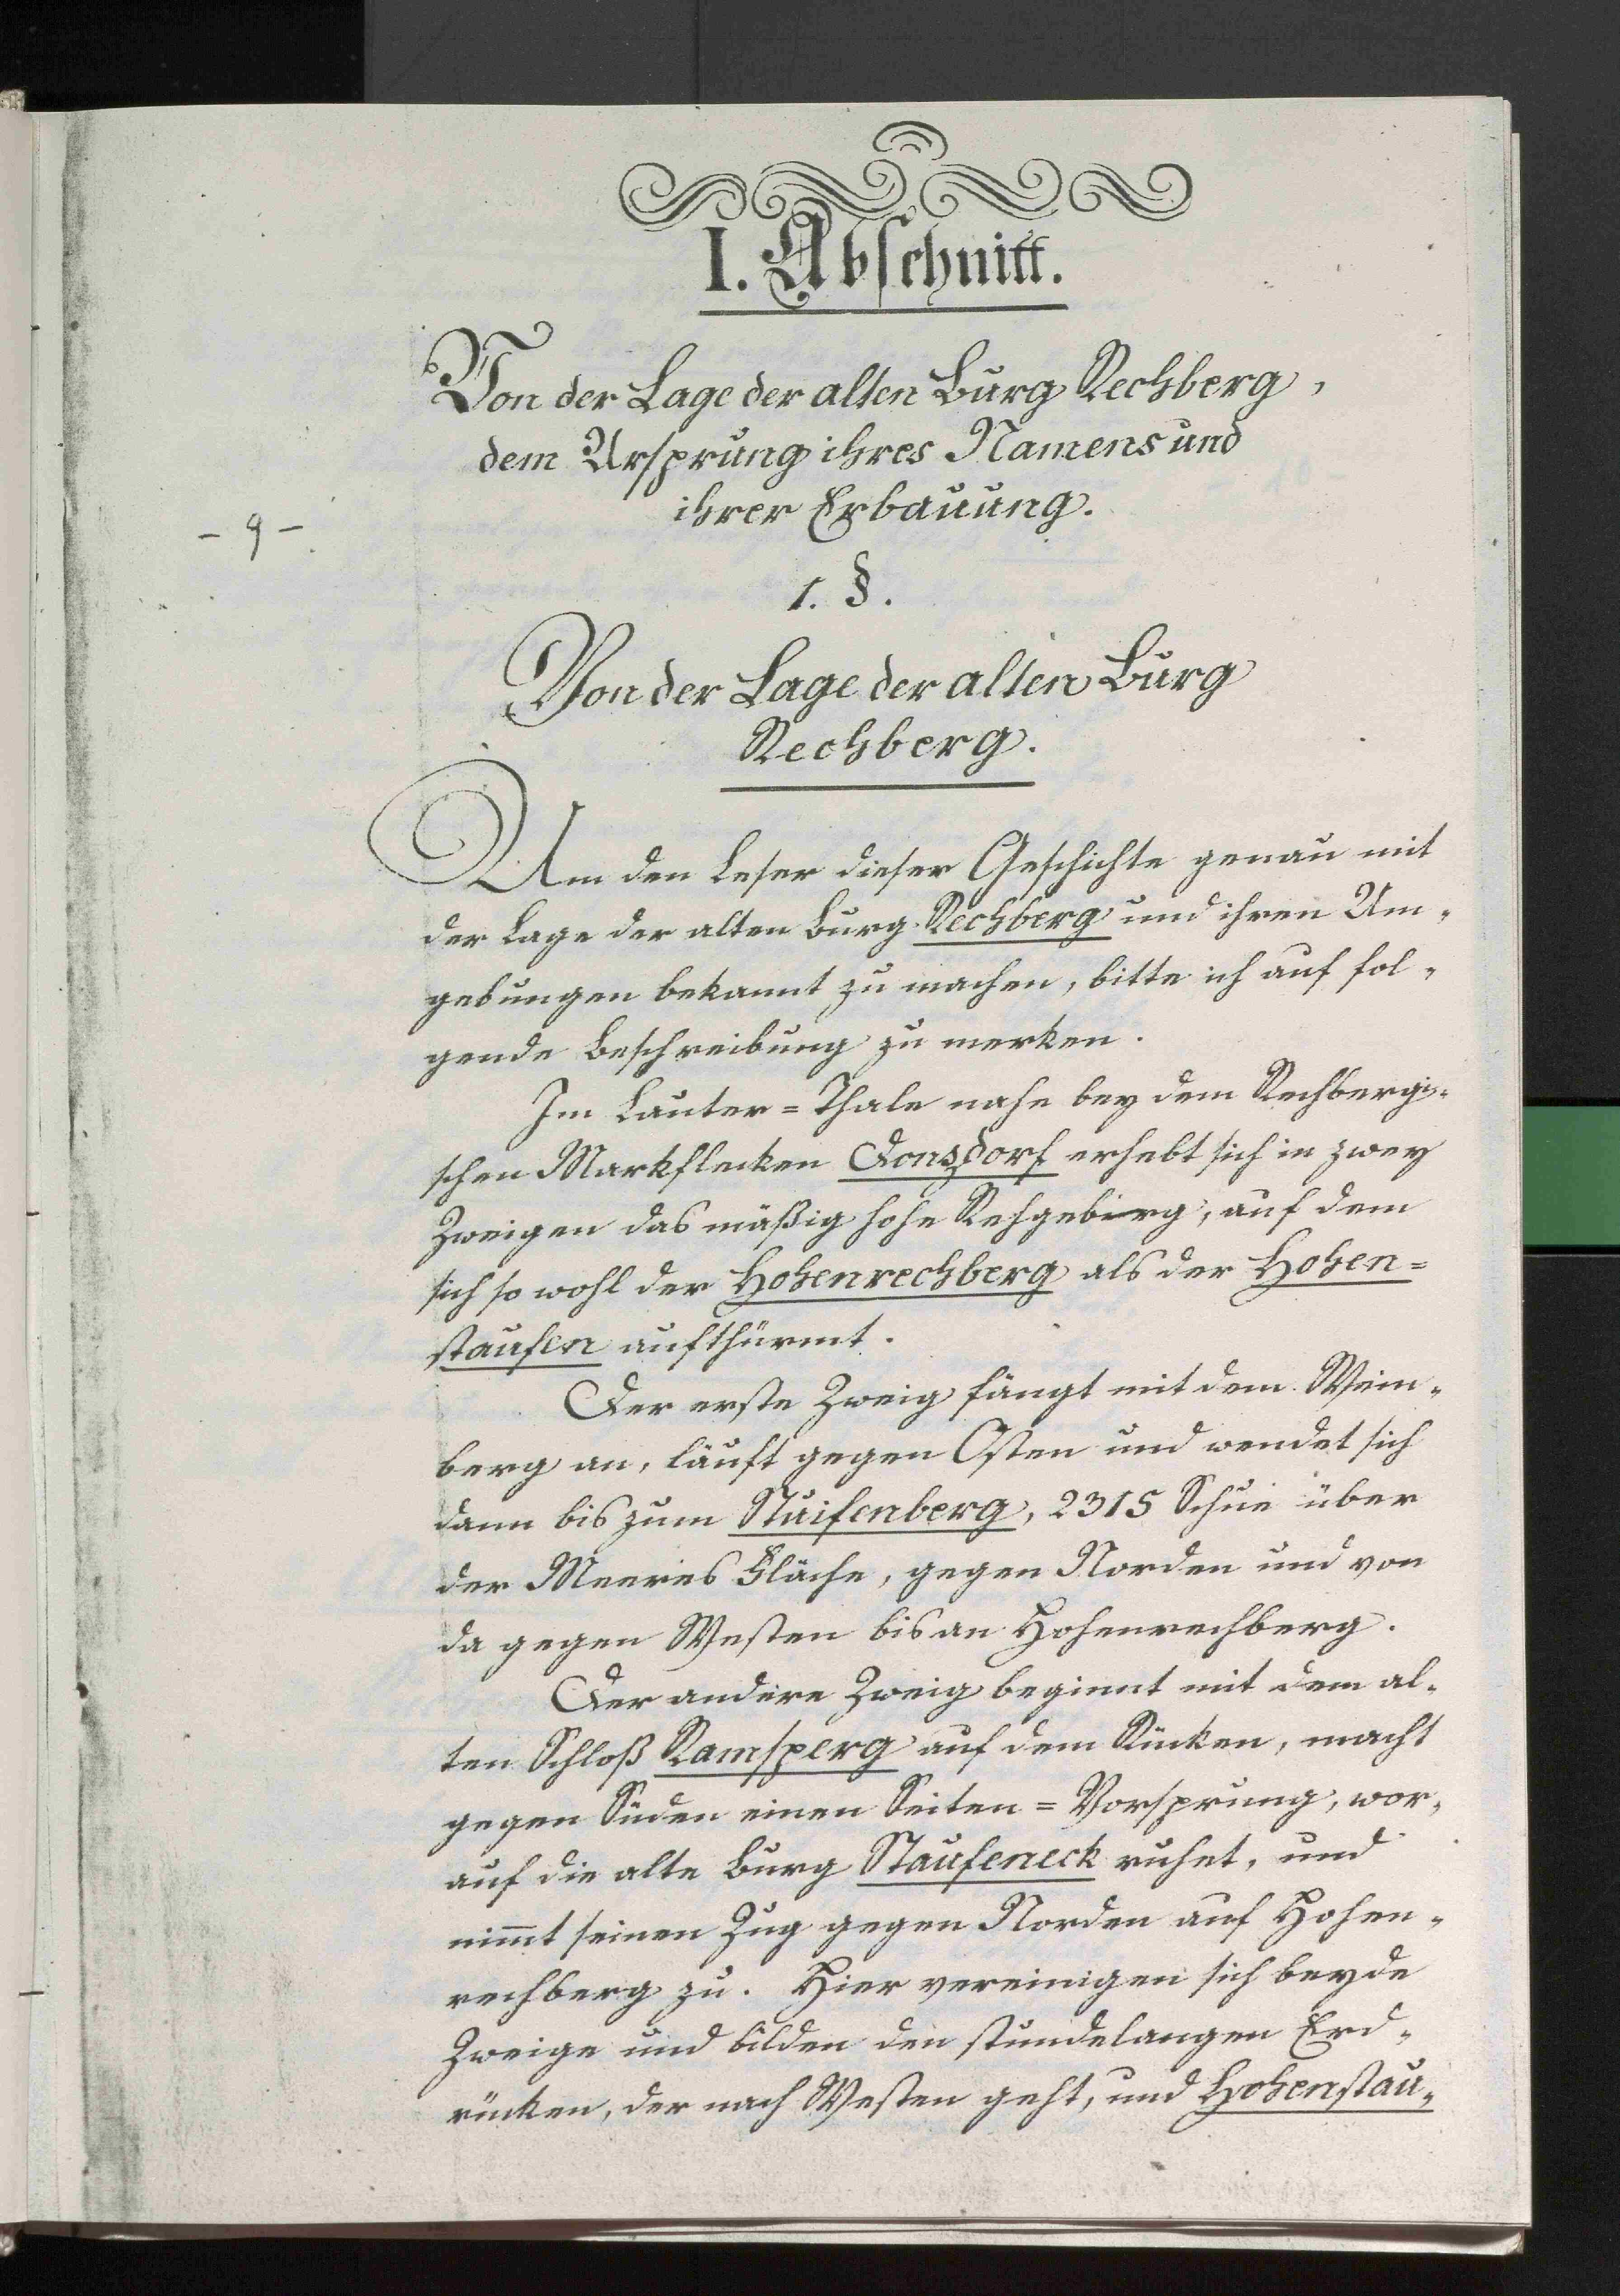 I. Abschnitt.
Von der Lage der alten Burg Rechberg,
dem Ursprung ihres Namens und
ihrer Erbauung.
- 9 -
1. §.
Von der Lage der alten Burg
Rechberg.
Um den Leser dieser Geschichte genau mit
der Lage der alten Burg Rechberg und ihren Um-
gebungen bekannt zu machen, bitte ich auf fol-
gende Beschreibung zu merken.
Im Lauter=Thale nahe bey dem Rechbergi-
schen Markflecken Donsdorf erhebt sich in zwey
Zweigen das mäßig hohe Rehgebirg, auf dem
sich so wohl der Hohenrechberg als der Hohen=
staufen aufthürmt.
Der erste Zweig fängt mit dem Wein-
berg an, läuft gegen Osten und wendet sich
dann bis zum Stuifenberg, 2315 Schue über
der Meeres Fläche, gegen Norden und von
da gegen Westen bis an Hohenrechberg.
Der andere Zweig beginnt mit dem al-
ten Schloß Ramsperg auf dem Rücken, macht
gegen Süden einen Seiten=Vorsprung, wor-
auf die alte Burg Staufeneck ruhet, und
nim̅t seinen Zug gegen Norden auf Hohen-
rechberg zu. Hier vereinigen sich beyde
Zweige und bilden den stundelangen Erd-
rücken, der nach Westen geht, und Hohenstau-